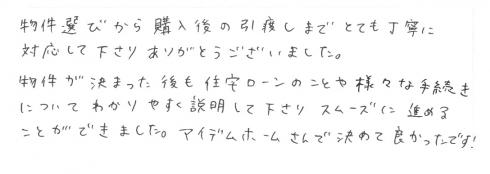 物件選びから購入後の引渡しまでとても丁寧に
対応して下さりありがとうございました。
物件が決まった後も住宅ローンのことや様々な手続き
についてわかりやすく説明して下さりスムーズに進める
ことができました。アイデムホームさんで決めて良かったです!